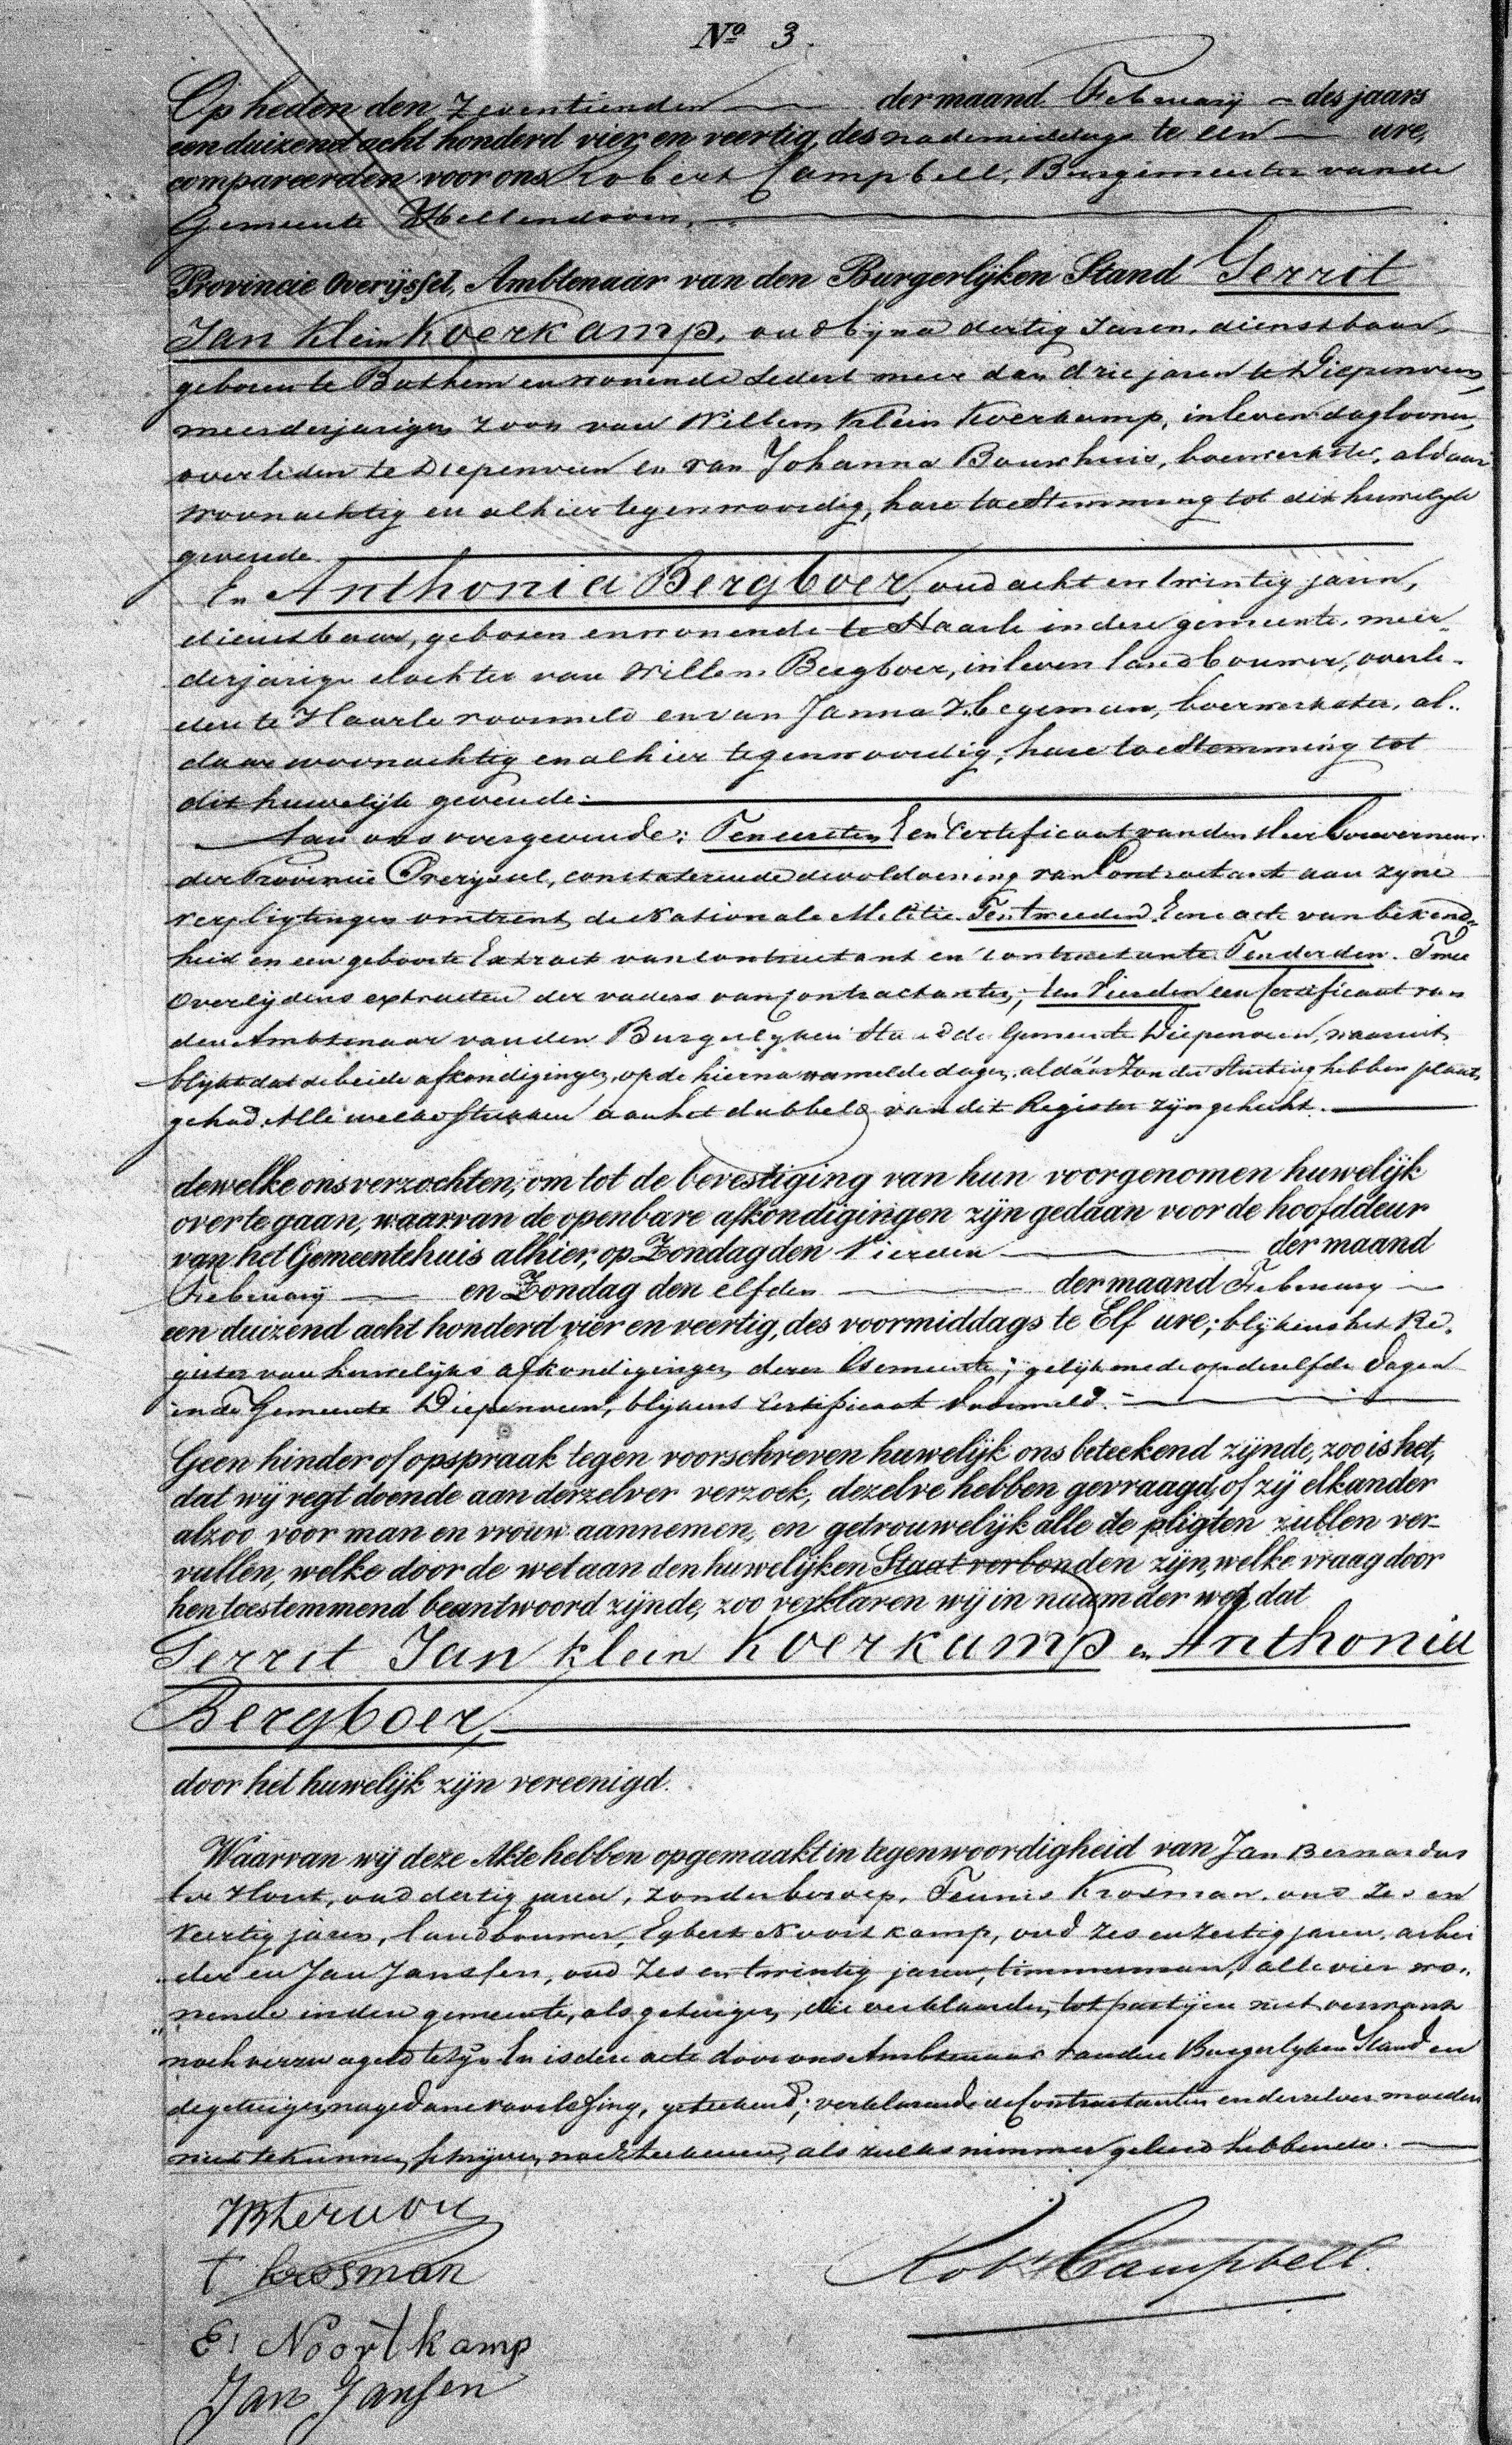 No 3.
Op heden den Zeventienden der maand February des jaars
een duizend acht honderd vier en veertig, des nademiddags te een ure,
compareerden voor ons Robert Campbell, Burgemeester van de
Gemeente Hellendoorn,
Provincie Overijssel, Ambtenaar van den Burgerlijken Stand Gerrit
Jan Klein Koerkamp, oud byna dertig Jaren, dienstbaar,
geboren te Bathem en wonende sedert meer dan drie jaren te Diepenveen,
meerderjarigen zoon van Willem Klein Koerkamp, in leven daglooner,
overleden te Diepenveen en van Johanna Bouwhuis, boerwerkster, aldaar
woonachtig en alhier tegenwoordig, hare toestemming tot dit huwelyk
gevende.
En Anthonia Bergboer, oud acht en twintig jaren,
dienstbaar, geboren en wonende te Haarle in deze gemeente, meer-
derjarige dochter van Willem Bergboer, in leven landbouwer, overle-
den te Haarle voormeld en van Janna Hegeman, boerwerkster, al-
daar woonachtig en alhier tegenwoordig, hare toestemming tot
dit huwelijk gevende.
Aan ons overgevende: Ten eersten Een Certificaat van den Heer Gouverneur
der Provincie Overyssel, constaterende de voldoening van Contractant aan zyne
verpligtingen omtrent de Nationale Militie. Ten tweeden. Eene acte van bekend-
heid en een geboorte Extract van contractant en contractante. Ten derden. Twee
Overlijdens extracten der vaders van Contractanten; ten Vierden een Certificaat van
den Ambtenaar van den Burgerlyken Stand de Gemeente Diepenveen, waaruit
blijkt dat de beide afkondigingen, op de hierna vermelde dagen, aldáár Zonder Stuiting hebben plaats
gehad. Alle welke stukken aan het dubbeld van dit Register zijn gehecht.
dewelke ons verzochten, om tot de bevestiging van hun voorgenomen huwelijk
over te gaan, waarvan de openbare afkondigingen zijn gedaan voor de hoofddeur
van het Gemeentehuis alhier, op Zondag den Vierden der maand
February en Zondag den elfden der maand February
een duizend acht honderd vier en veertig, des voormiddags te Elf ure; blijkens het Re-
gister van huwelijks afkondigingen dezer Gemeente; gelijk mede op dezelfde dagen
in de Gemeente Diepenveen, blijkens Certificaat voormeld.
Geen hinder of opspraak tegen voorschreven huwelijk ons beteekend zijnde, zoo is het,
dat wij regt doende aan derzelver verzoek, dezelve hebben gevraagd, of zij elkander
alzoo voor man en vrouw aannemen, en getrouwelijk alle de pligten zullen ver-
vullen, welke door de wet aan den huwelijken Staat verbonden zijn, welke vraag door
hen toestemmend beantwoord zijnde, zoo verklaren wij in naam der wet, dat
Gerrit Jan Klein Koerkamp en Anthonia
Bergboer,
door het huwelijk zijn vereenigd.
Waarvan wij deze Akte hebben opgemaakt in tegenwoordigheid van Jan Bernardus
ter Horst, oud dertig jaren, zonder beroep, Teunis Krosman, oud zes en
veertig jaren, landbouwer, Egbert Noortkamp, oud zes en zestig jaren, arbei
der en Jan Janssen, oud zes en twintig jaren, timmerman, alle vier wo-
nende in deze gemeente, als getuigen, die verklaarden, tot partijen niet vermant
noch verzwagerd te zijn. En is deze acte door ons Ambtenaar van den Burgerlyken Stand en
de getuigen, na gedane voorlezing, geteekend; verklarende de Contractanten en derzelver moeders
niet te kunnen schrijven, noch teekenen, als zulks nimmer geleerd hebbende.
T Krosman
Robt Campbell.
E: Noortkamp
Jan Jansen